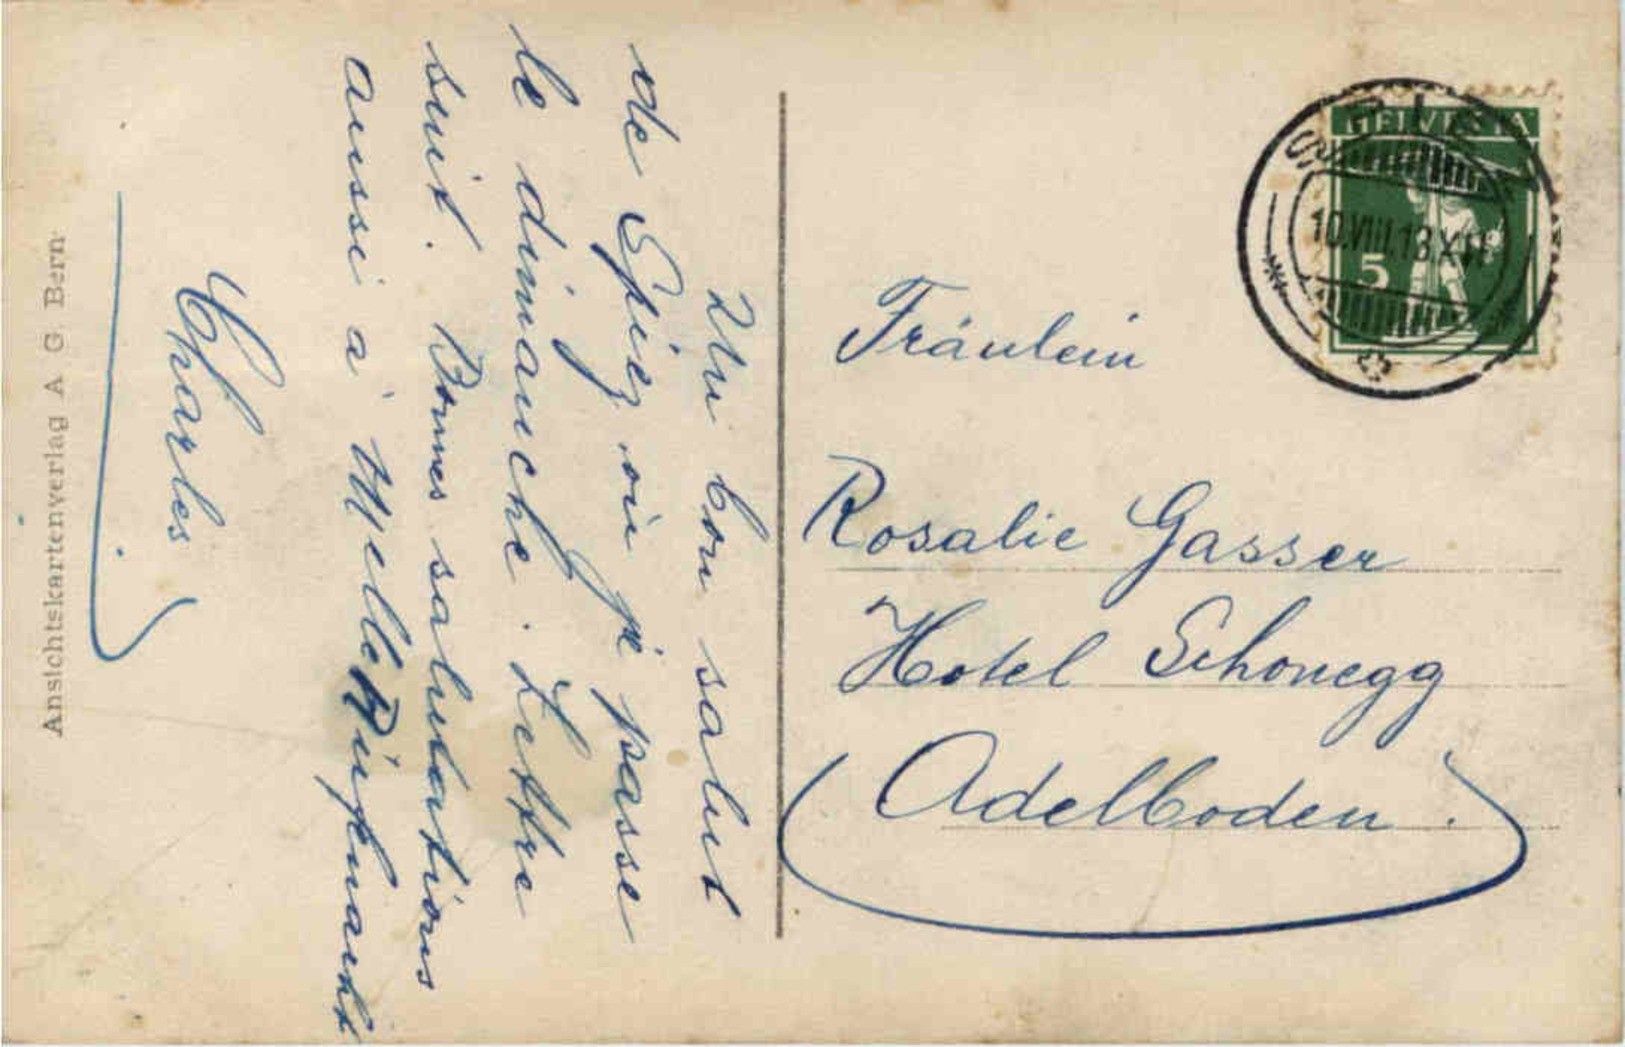 Un bon salut
de Spiez, où je passe
le dimanche. Lettre
suit. Bonnes salutations
aussi à Melle
Charles
Fräulein
Rosalie Gasser
Hotel Schonegg
Adelboden.
HELVETIA
5
SPIEZ
10.VIII.13.XII
Ansichtskartenverlag A G Bern